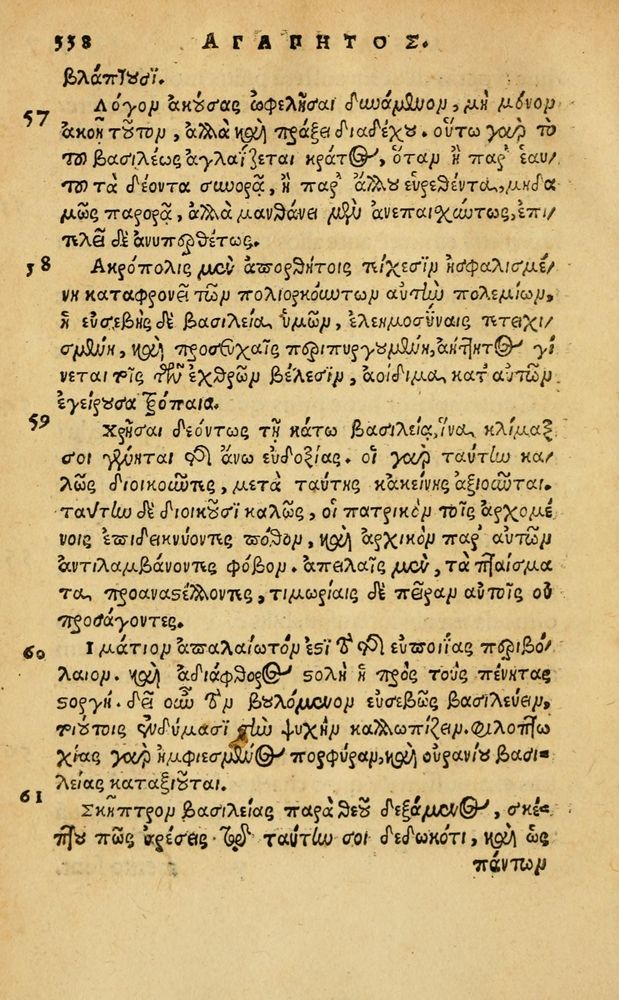 558 ΑΓΑΠΗΤΟΣ.
βλάπτουσι.
57 Λόγον ἀκούσας ὠφελῆσαι δυνάμενον, μὴ μόνον
ἀκοῇ τοῦτον, ἀλλὰ καὶ πράξει διαδέχου. οὕτω γὰρ τὸ
τοῦ βασιλέως ἀγλαΐζεται κράτος, ὅταν ἢ παρ' ἑαυ-
τοῦ τὰ δέοντα συνορᾷ, ἢ παρ' ἄλλου εὑρεθέντα, μηδα
μῶς παρορᾷ, ἀλλὰ μανθάνει μὲν ἀνεπαισχύντως, ἐπι-
τελεῖ δὲ ἀνυπερθέτως.
58 Ἀκρόπολις μὲν ἀπορθήτοις τείχεσιν ἠσφαλισμέ-
νη καταφρονεῖ τῶν πολιορκούντων αὐτὴν πολεμίων,
ἡ εὐσεβὴς δὲ βασιλεία ὑμῶν, ἐλεημοσύναις τετειχι-
σμένη, καὶ προσευχαῖς περιπυργουμένη, ἀήττητος γί-
νεται τοῖς τῶν ἐχθρῶν βέλεσιν, ἀοίδιμα κατ' αὐτῶν
ἐγείρουσα τρόπαια.
59 Χρῆσαι δεόντως τῇ κάτω βασιλείᾳ, ἵνα κλίμαξ
σοι γένηται τῆς ἄνω εὐδοξίας. οἱ γὰρ ταύτην κα-
λῶς διοικοῦντες, μετὰ ταύτης κἀκείνης ἀξιοῦνται.
ταύτην δὲ διοικοῦσι καλῶς, οἱ πατρικὸν τοῖς ἀρχομέ
νοις ἐπιδεικνύοντες πόθον, καὶ ἀρχικὸν παρ' αὐτῶν
ἀντιλαμβάνοντες φόβον. ἀπειλαῖς μὲν, τὰ πταίσμα
τα προαναστέλλοντες, τιμωρίαις δὲ πεῖραν αὐτοῖς οὐ
προσάγοντες.
60 Ἱμάτιον ἀπαλαίωτόν ἐστι τὸ τῆς εὐποιΐας περιβό-
λαιον. καὶ ἀδιάφθορος στολὴ ἡ πρὸς τοὺς πένητας
στοργή. δεῖ οὖν τὸν βουλόμενον εὐσεβῶς βασιλεύειν,
τοιούτοις ἐνδύμασι τὴν ψυχὴν καλλωπίζειν. φιλοπτω
χίας γὰρ ἠμφιεσμένος πορφύραν, καὶ οὐρανίου βασι-
λείας καταξιοῦται.
61 Σκῆπτρον βασιλείας παρὰ θεοῦ δεξάμενος, σκέ-
πτου πῶς ἀρέσεις τῷ ταύτην σοι δεδωκότι, καὶ ὡς
πάντων